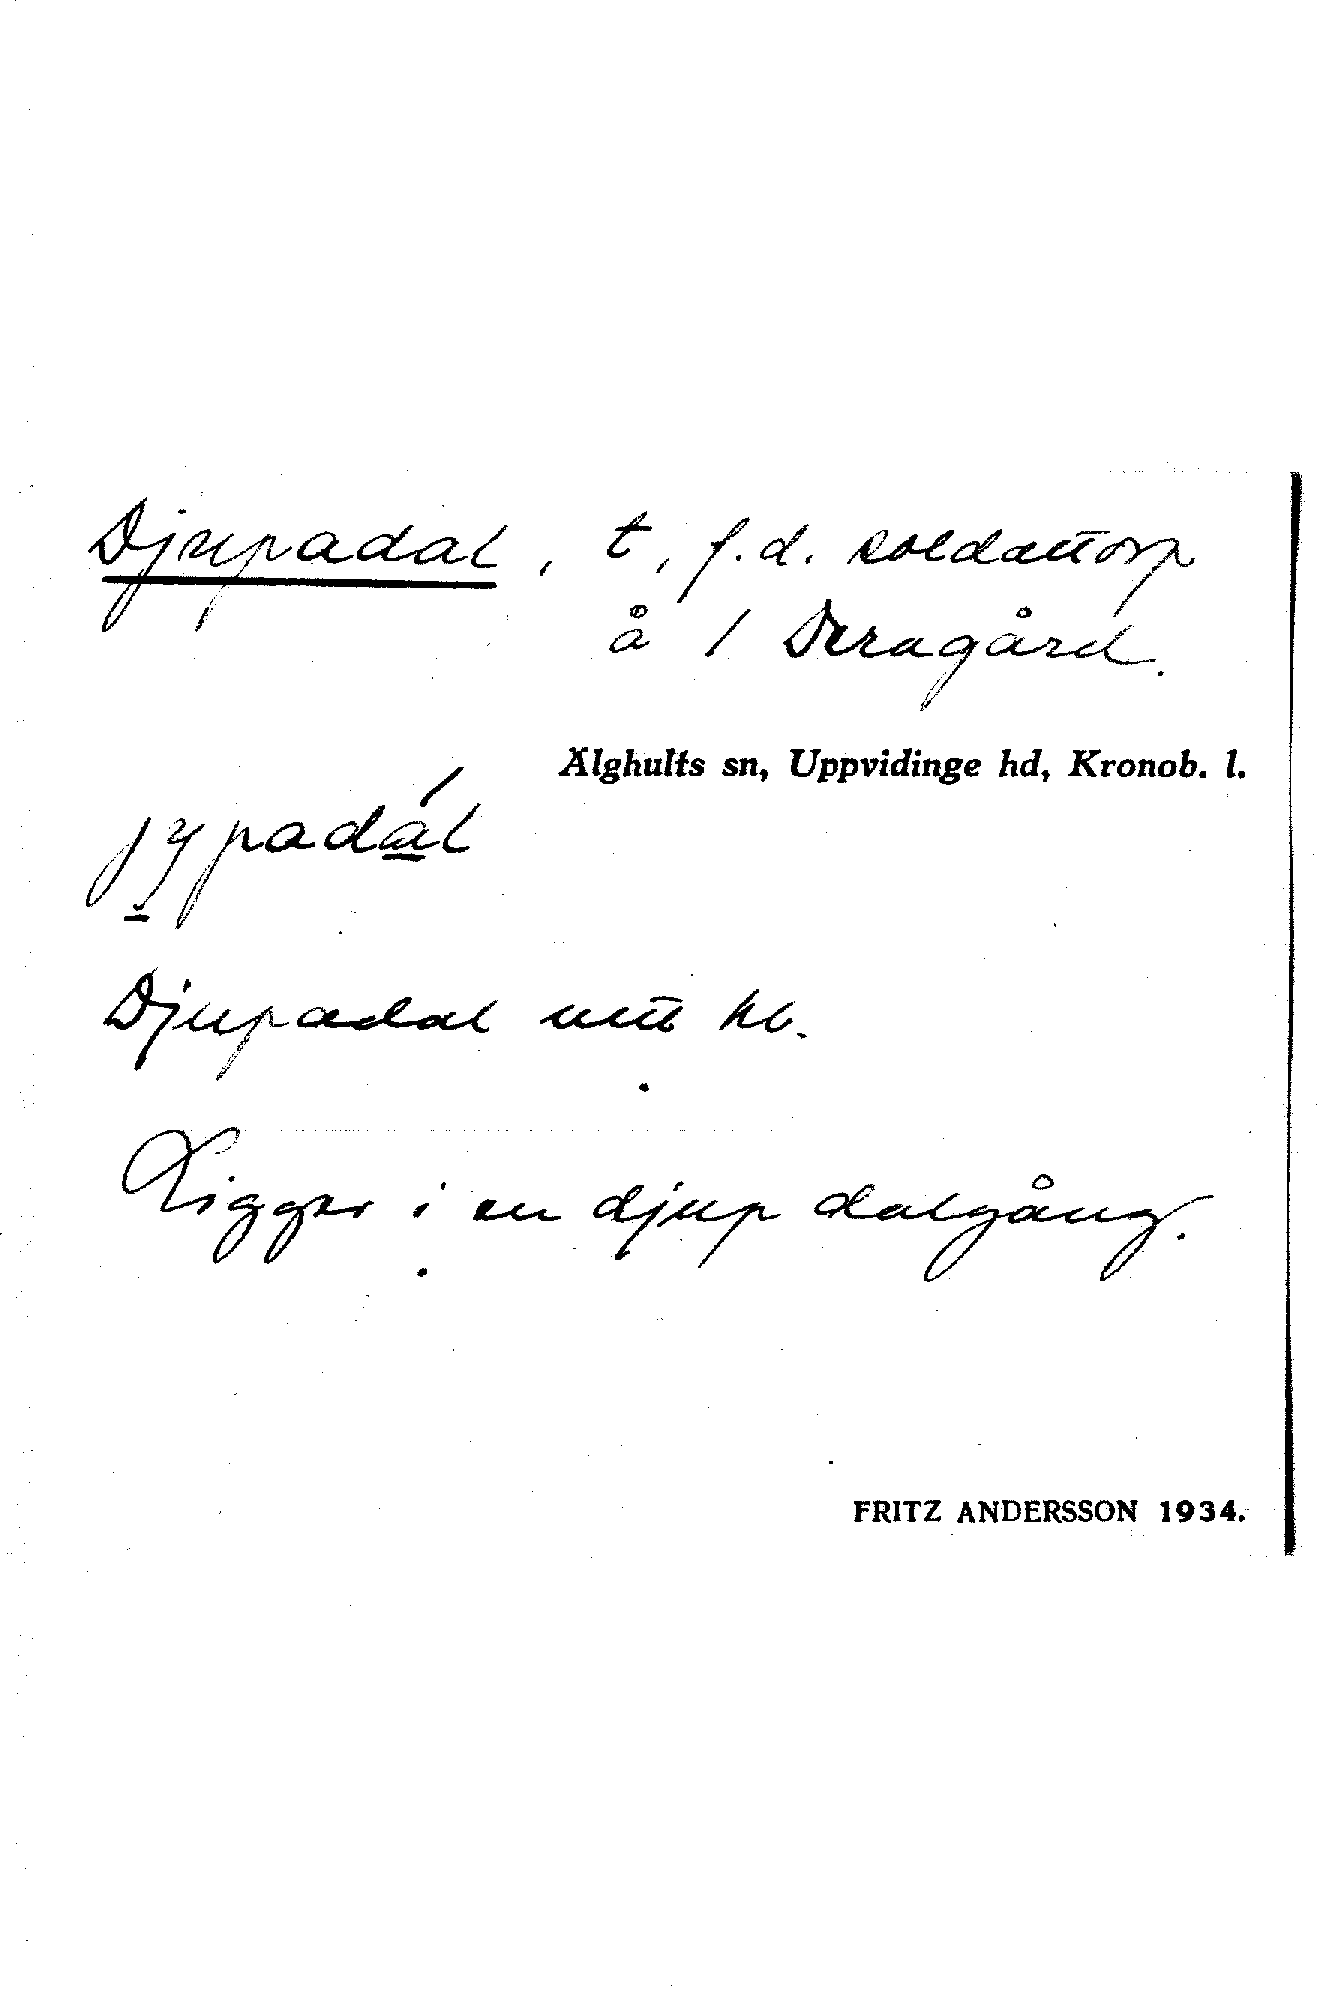 Djupadal, t, f.d. soldattorp
å 1 Deragård.
Älghults sn, Uppvidinge hd, Kronob. l.
jypadál
Djupadal utt hb.
Ligger i en djup dalgång.
FRITZ ANDERSSON 1934.